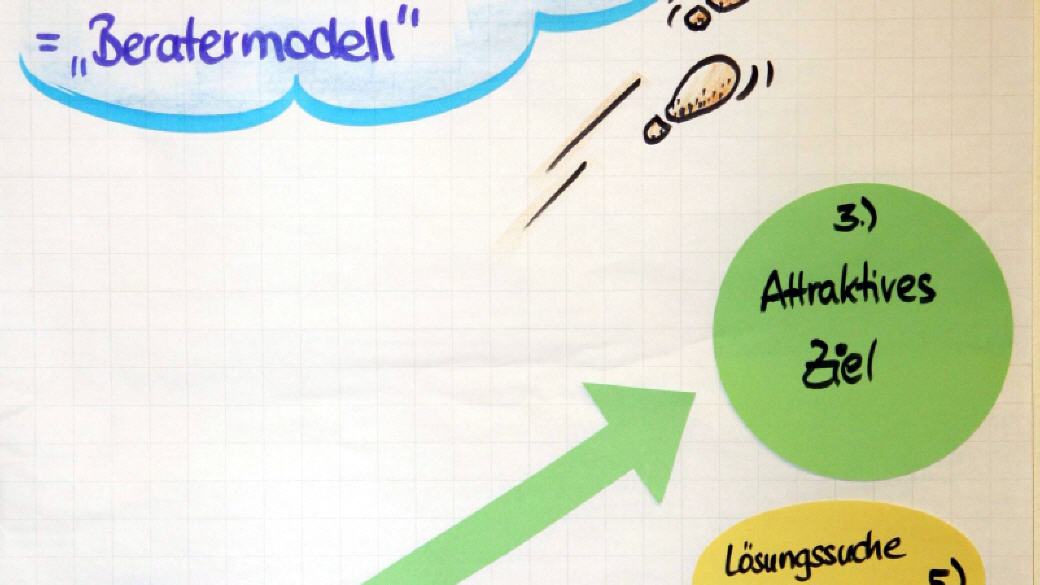 = „Beratermodell“
3.)
Attraktives
Ziel
Lösungssuche
5)